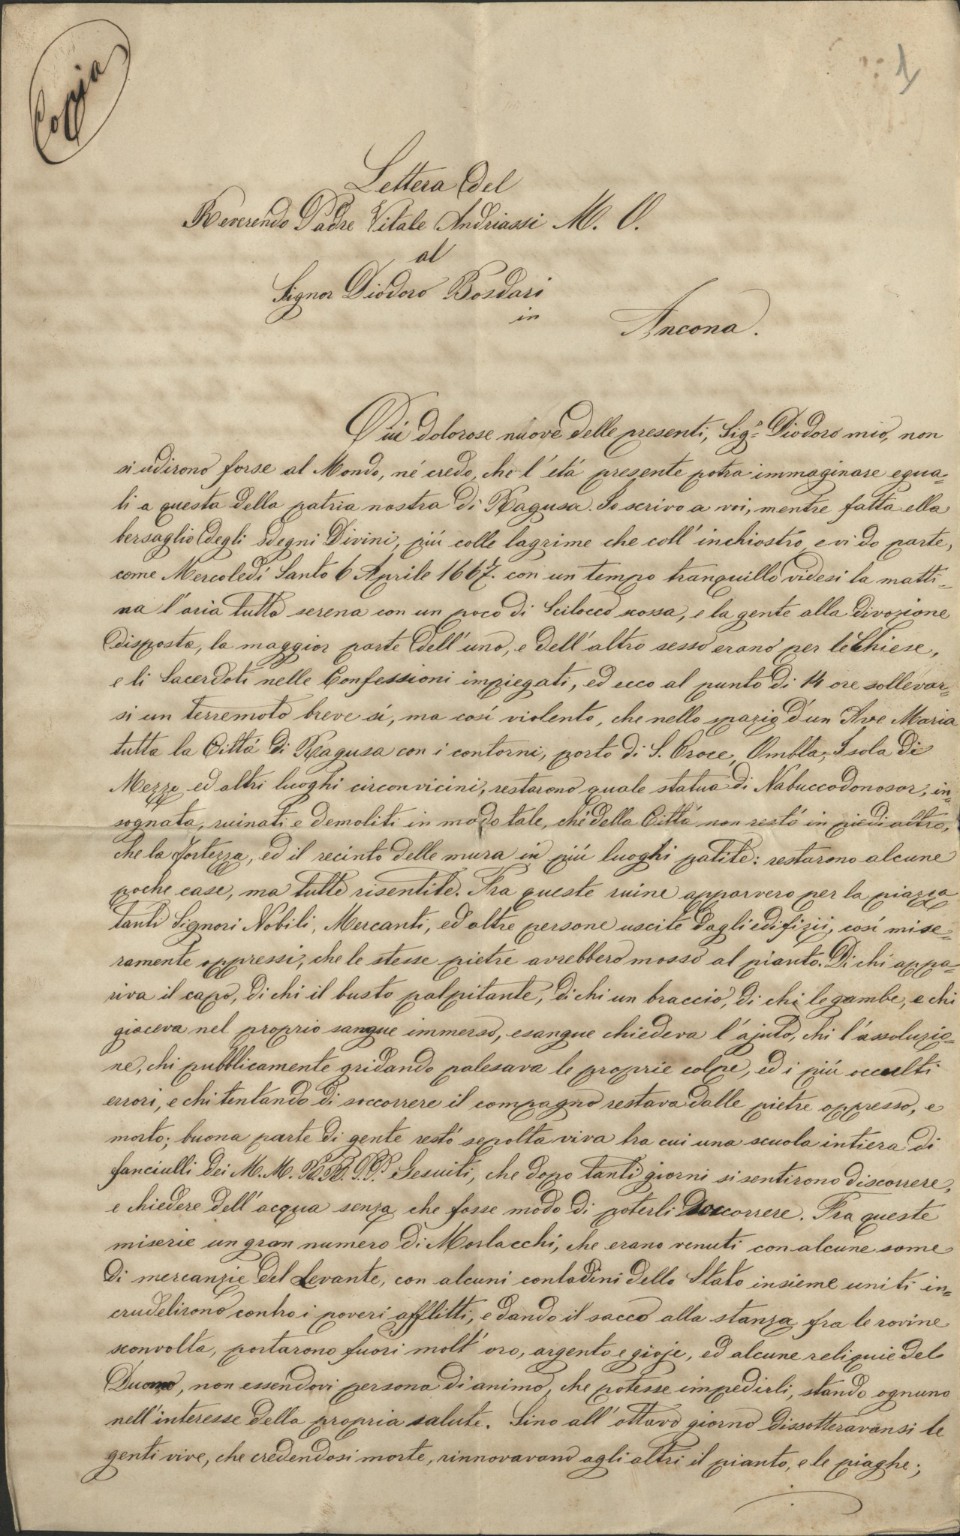 Copja
1
Lettera del
Reverendo Padre Vitale Andriassi M. O.
al
Signor Diodoro Bosdari
in
Ancona.
Piú dolorose nuove delle presenti, Sig.r Diodoro mio, non
si udirono forse al Mondo, né credo, che l'etá presente potra immaginare egua-
li a questa della patria nostra di Ragusa. Io scrivo a voi, mentre fatta ella
bersaglio degli sdegni Divini, piú colle lagrime che coll'inchiostro, e vi do parte,
come Mercoledí Santo 6 Aprile 1667. con un tempo tranquillo videsi la matti-
na l'aria tutta serena con un poco di Scilocco rossa, e la gente alla divozione
disposta, la maggior parte dell'uno, e dell'altro sesso erano per le Chiese,
e li Sacerdoti nelle Confessioni impiegati, ed ecco al punto di 14 ore sollevar-
si un terremoto breve sí, ma cosí violento, che nello spazio d'un Ave Maria
tutta la Cittá di Ragusa con i contorni, porto di S. Croce, Ombla, Isola di
Mezzo, ed altri luoghi circonvicini, restarono quale statua di Nabuccodonosor, in-
sognata, ruinati e demoliti in modo tale, che della Cittá non restó in piedi altro,
che la fortezza, ed il recinto delle mura in piú luoghi patite: restarono alcune
poche case, ma tutte risentite. Fra queste ruine apparvero per la piazza
tanti Signori Nobili, Mercanti, ed altre persone uscite dagli edifizii, cosí mise-
ramente oppressi, che le stesse pietre avrebbero mosso al pianto. Di chi appa-
riva il capo, di chi il busto palpitante, di chi un braccio, di chi le gambe, e chi
giaceva nel proprio sangue immerso, esangue chiedeva l'ajuto, chi l'assoluzio-
ne, chi pubblicamente gridando palesava le proprie colpe, ed i piú occulti
errori, e chi tentando di soccorrere il compagno restava dalle pietre oppresso, e
morto; buona parte di gente restó sepolta viva tra cui una scuola intiera di
fanciulli dei M. M. R.R. P.P. Gesuiti, che dopo tanti giorni si sentirono discorrere,
e chiedere dell'acqua senza che fosse modo di poterli soccorrere. Fra queste
miserie un gran numero di Morlacchi, che erano venuti con alcune some
di mercanzie del Levante, con alcuni contadini dello Stato insieme uniti in-
crudelirono contro i poveri afflitti, e dando il sacco alla stanza fra le rovine
sconvolta, portarono fuori molt'oro, argento e gioje, ed alcune reliquie del
Duomo, non essendovi persona di animo, che potesse impedirli, stando ognuno
nell'interesse della propria salute. Sino all'ottavo giorno dissotteravansi le
genti vive, che credendosi morte, rinnovavano agli altri il pianto, e le piaghe;